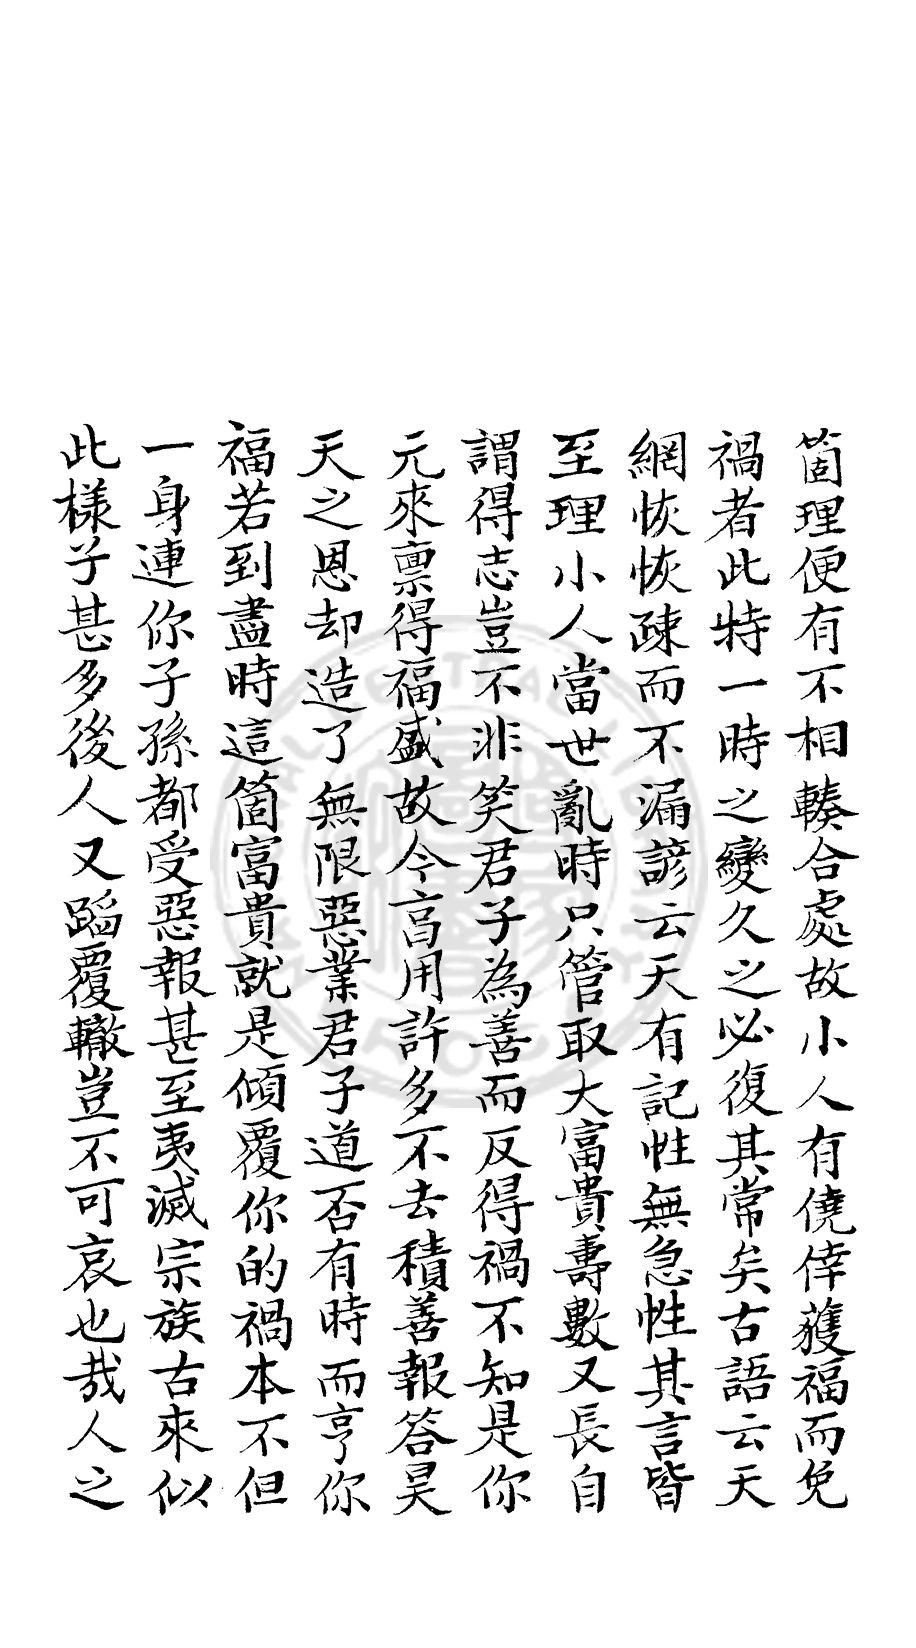 箇理便有不相輳合處故小人有僥倖蒦福而免
禍者此特一時之變久之必復其常矣古語云天
網恢恢疎而不漏諺云天有記性無急性其言皆
至理小人當世亂時只管取大富貴壽數又長自
謂得志豈不非笑君子為善而反得禍不知是你
元來禀得福盛故今亯用許多不去積善報答昊
天之恩却造了無限惡業君子道否有時而亨你
福若到盡時這箇富貴就是傾覆你的禍本不但
一身連你子孫都受惡報甚至夷滅宗族古來似
此樣子甚多後人又蹈覆轍豈不可哀也哉人之